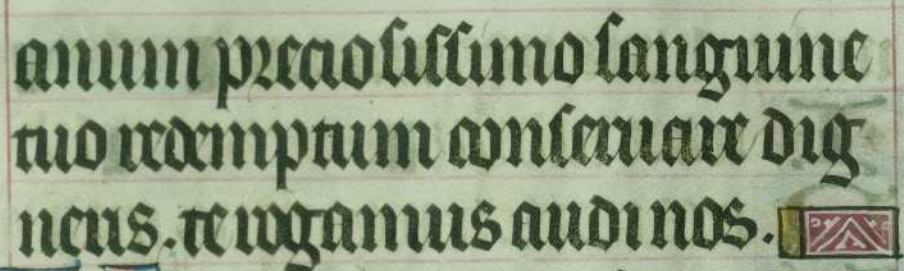 anum preciosissimo sanguine
tuo redemptum conseruare dig
neris. te rogamus audi nos.